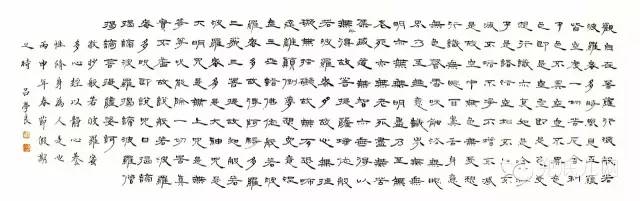 觀自在菩薩行深般若
波羅蜜多時照見五蘊
皆空度一切苦厄舍利
子色不異空空不異色
色即是空空即是色受
想行識亦復如是舍利
子是諸法空相不生不
滅不垢不淨不增不減
是故空中無色無受想
行識無眼耳鼻舌身意
無色聲香味觸法無眼
界乃至無意識界無無
明亦無無明盡乃至無
老死亦無老死盡無苦
集滅道無智亦無得以
無所得故菩提薩埵依
般若波羅蜜多故心無
罣礙無罣礙故無有恐
怖遠離顛倒夢想究竟
涅槃三世諸佛依般若
波羅蜜多故得阿耨多
羅三藐三菩提故知般
若波羅蜜多是大神咒
是大明咒是無上咒是
無等等咒能除一切苦真
實不虛故說般若波羅
蜜多咒即說咒曰揭諦
揭諦波羅揭諦波羅僧
揭諦菩提薩婆訶
敬抄般若波羅蜜
多心經以靜心養
性修身為人是也
丙申年春節假期
之時 呂學良